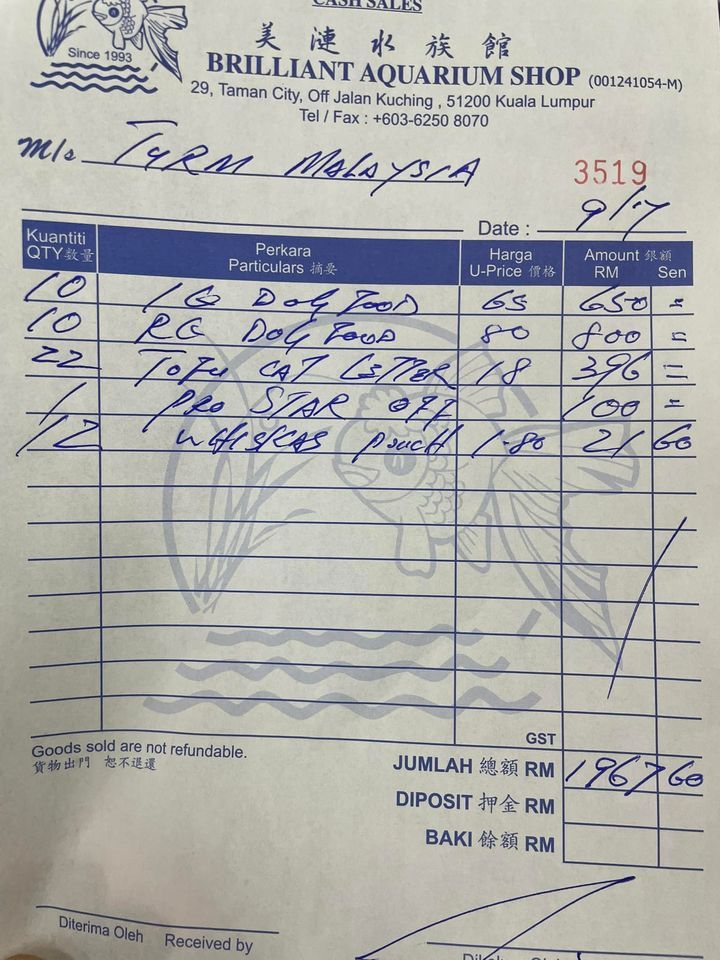 CASH SALES
Since 1993
美漣水族館
BRILLIANT AQUARIUM SHOP (001241054-M)
29, Taman City, Off Jalan Kuching , 51200 Kuala Lumpur
Tel / Fax : +603-6250 8070
M/s TYRM MALAYSIA
3519
Date : 9/7
Kuantiti QTY 數量 Perkara Particulars 摘要 Harga U-Price 價格 Amount 銀額 RM Sen
10 IG DOG FOOD 65 650 =
10 RG DOG FOOD 80 800 =
22 TOFU CAT LITTER 18 396 =
1 PRO STAR OFF 100 =
12 WHISKAS POUCH 1-80 21 60
GST
Goods sold are not refundable.
貨物出門 恕不退還
JUMLAH 總額 RM 1967 60
DIPOSIT 押金 RM
BAKI 餘額 RM
Diterima Oleh Received by